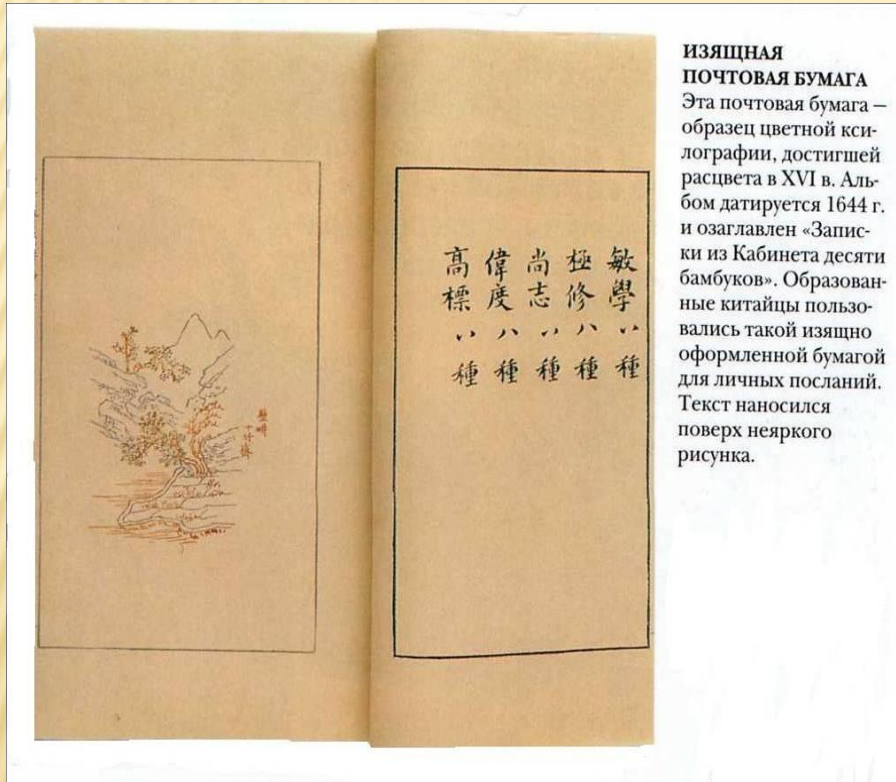 敏學八種
極修八種
尚志八種
偉度八種
高標八種
十竹齋
ИЗЯЩНАЯ
ПОЧТОВАЯ БУМАГА
Эта почтовая бумага –
образец цветной кси-
лографии, достигшей
расцвета в XVI в. Аль-
бом датируется 1644 г.
и озаглавлен «Запис-
ки из Кабинета десяти
бамбуков». Образован-
ные китайцы пользо-
вались такой изящно
оформленной бумагой
для личных посланий.
Текст наносился
поверх неяркого
рисунка.